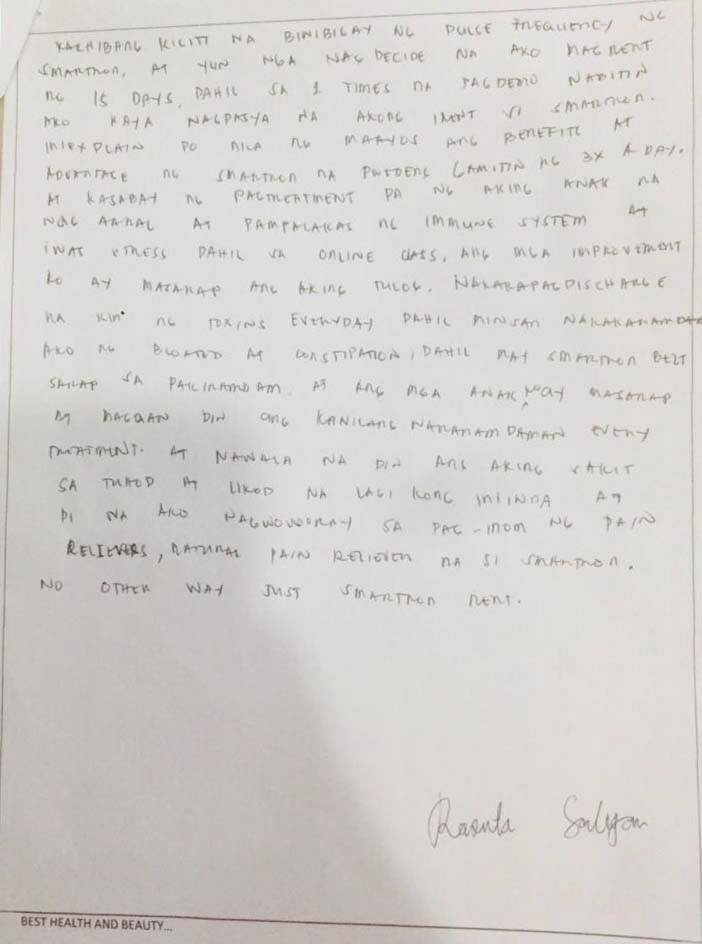 KAKAIBANG KILITI NA BINIBIGAY NG PULSE FREQUENCY NG
SMARTRON, AT YUN NGA NAG DECIDE NA AKO MAG RENT
NG 15 DAYS, DAHIL SA 1 TIMES NA PAGDEMO NABITIN
AKO KAYA NAGPASYA NA AKONG IRENT SI SMARTRON.
INIEXPLAIN PO NILA NG MAAYOS ANG BENEFITS AT
ADVANTAGE NG SMARTRON NA PWEDENG GAMITIN NG 3X A DAY.
AT KASABAY NG PAGTREATMENT PA NG AKING ANAK NA
NAG AARAL AT PAMPALAKAS NG IMMUNE SYSTEM AT
IWAS STRESS DAHIL SA ONLINE CLASS, ANG MGA IMPROVEMENT
KO AY MASARAP ANG AKING TULOG. NAKAKAPAGDISCHARGE
NA RIN NG TOXINS EVERYDAY DAHIL MINSAN NAKAKARAMDAM
AKO NG BLOATED AT CONSTIPATION, DAHIL MAY SMARTRON BELT
SA PAKIRAMDAM. AT ANG MGA ANAK KO AY MASARAP
AT MAGAAN DIN ANG KANILANG NARARAMDAMAN EVERY
TREATMENT. AT NAWALA NA DIN ANG AKING SAKIT
SA TUHOD AT LIKOD NA LAGI KONG INIINDA AT
DI NA AKO NAGWOWORRY SA PAG-INOM NG PAIN
RELIEVERS, NATURAL PAIN RELIEVER NA SI SMARTRON.
NO OTHER WAY JUST SMARTRON RENT.
BEST HEALTH AND BEAUTY...